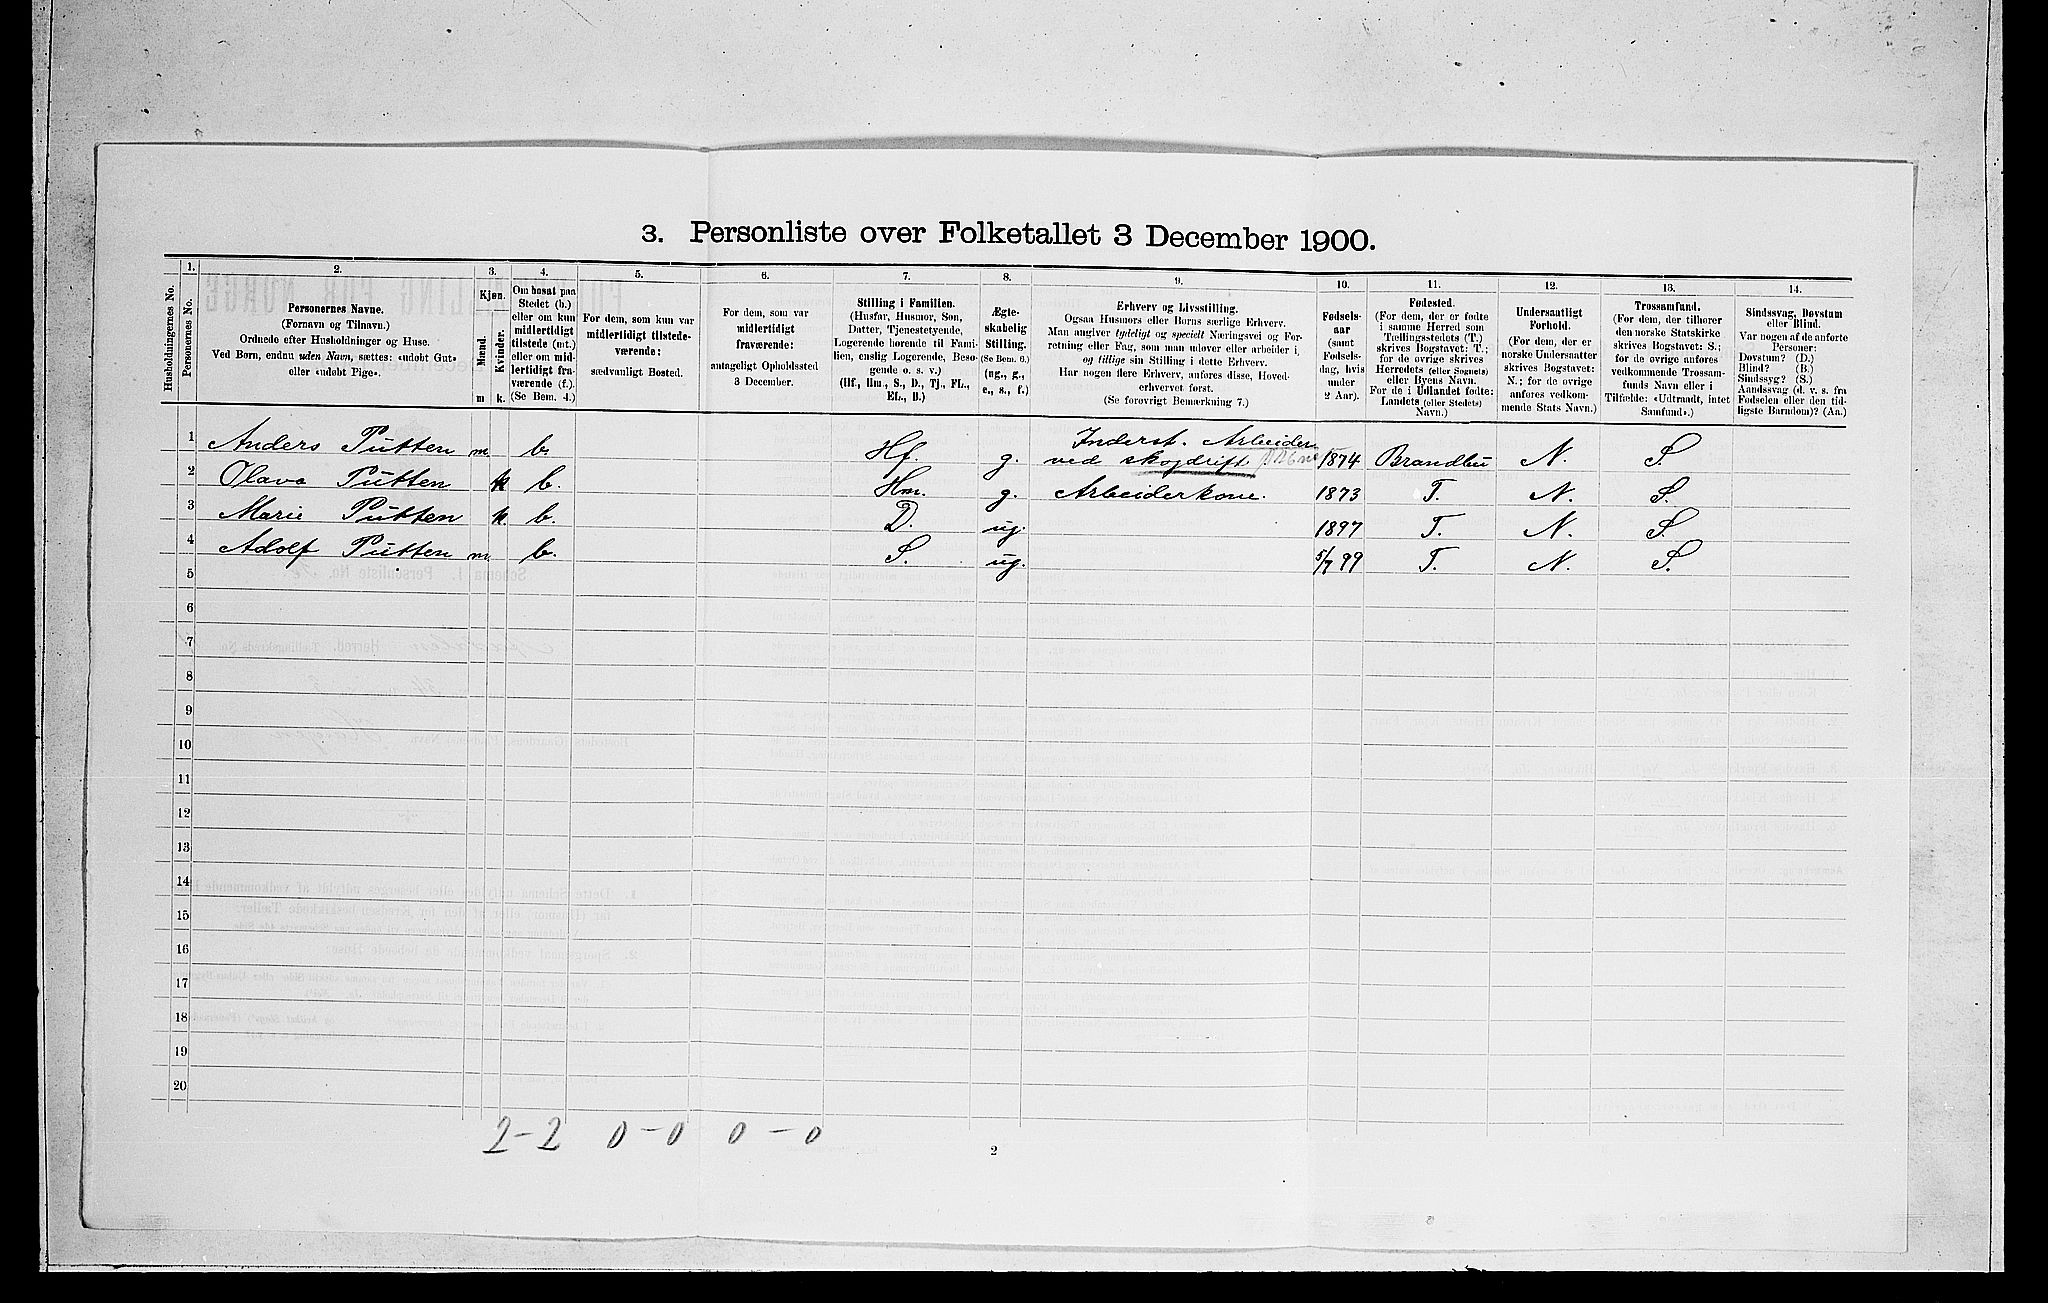 3. Personliste over Folketallet 3 December 1900.
1. 2. 3. 4. 5. 6. 7. 8. 9. 10. 11. 12. 13. 14.
Husholdningernes No.
Personernes No.
Personernes Navne.
(Fornavn og Tilnavn.)
Ordnede efter Husholdninger og Huse.
Ved Børn, endnu uden Navn, sættes: «udøbt Gut»
eller «udøbt Pige».
Kjøn.
Mænd.
Kvinder.
m k.
Om bosat paa
Stedet (b.)
eller om kun
midlertidigt
tilstede (mt.)
eller om mid-
lertidigt fra-
værende (f.)
(Se Bem. 4.)
For dem, som kun var
midlertidigt tilstede-
værende:
sædvanligt Bosted.
For dem, som var
midlertidigt
fraværende:
antageligt Opholdssted
3 December.
Stilling i Familien.
(Husfar, Husmor, Søn,
Datter, Tjenestetyende,
Logerende hørende til Fami-
lien, enslig Logerende, Besø-
gende o. s. v.)
(Hf., Hm., S., D., Tj., FL.,
EL., B.)
Ægte-
skabelig
Stilling.
(Se Bem. 6.)
(ug., g.,
e., s., f.)
Erhverv og Livsstilling.
Ogsaa Husmors eller Børns særlige Erhverv.
Man angiver tydeligt og specielt Næringsvei og For-
retning eller Fag, som man udøver eller arbeider i,
og tillige sin Stilling i dette Erhverv.
Har nogen flere Erhverv, anføres disse, Hoved-
erhvervet først.
(Se forøvrigt Bemærkning 7.)
Fødsels-
aar
(samt
Fødsels-
dag, hvis
under
2 Aar).
Fødested.
(For dem, der er fødte
i samme Herred som
Tællingsstedets (T.)
skrives Bogstavet: T.;
for de øvrige skrives
Herredets (eller Sognets)
eller Byens Navn.
For de i Udlandet fødte:
Landets (eller Stedets)
Navn.)
Undersaatligt
Forhold.
(For dem, der er
norske Undersaatter
skrives Bogstavet:
N.; for de øvrige
anføres vedkom-
mende Stats Navn.)
Trossamfund.
(For dem, der tilhører
den norske Statskirke
skrives Bogstavet: S.;
for de øvrige anføres
vedkommende Trossam-
funds Navn eller i
Tilfælde: «Udtraadt, intet
Samfund».)
Sindssvag, Døvstum
eller Blind.
Var nogen af de anførte
Personer:
Døvstum? (D.)
Blind? (B.)
Sindssyg? (S.)
Aandssvag (d. v. s. fra
Fødselen eller den tid-
ligste Barndom)? (Aa.)
1 Anders Putten m b. Hf. g. Inderst. Arbeider
ved skogdrift 1874 Brandbu N. S.
2 Olava Putten k b. Hm. g. Arbeiderkone. 1873 T. N. S.
3 Marie Putten k. b. D. ug. 1897 T. N. S.
4 Adolf Putten m b. S. ug. 5/7 99 T. N. S.
5
6
7
8
9
10
11
12
13
14
15
16
17
18
19
20
2-2 0-0 0-0
2